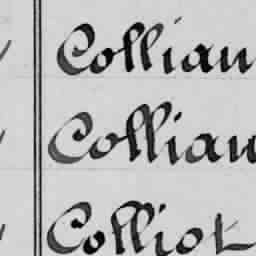 Colliau
Colliau
Colliot